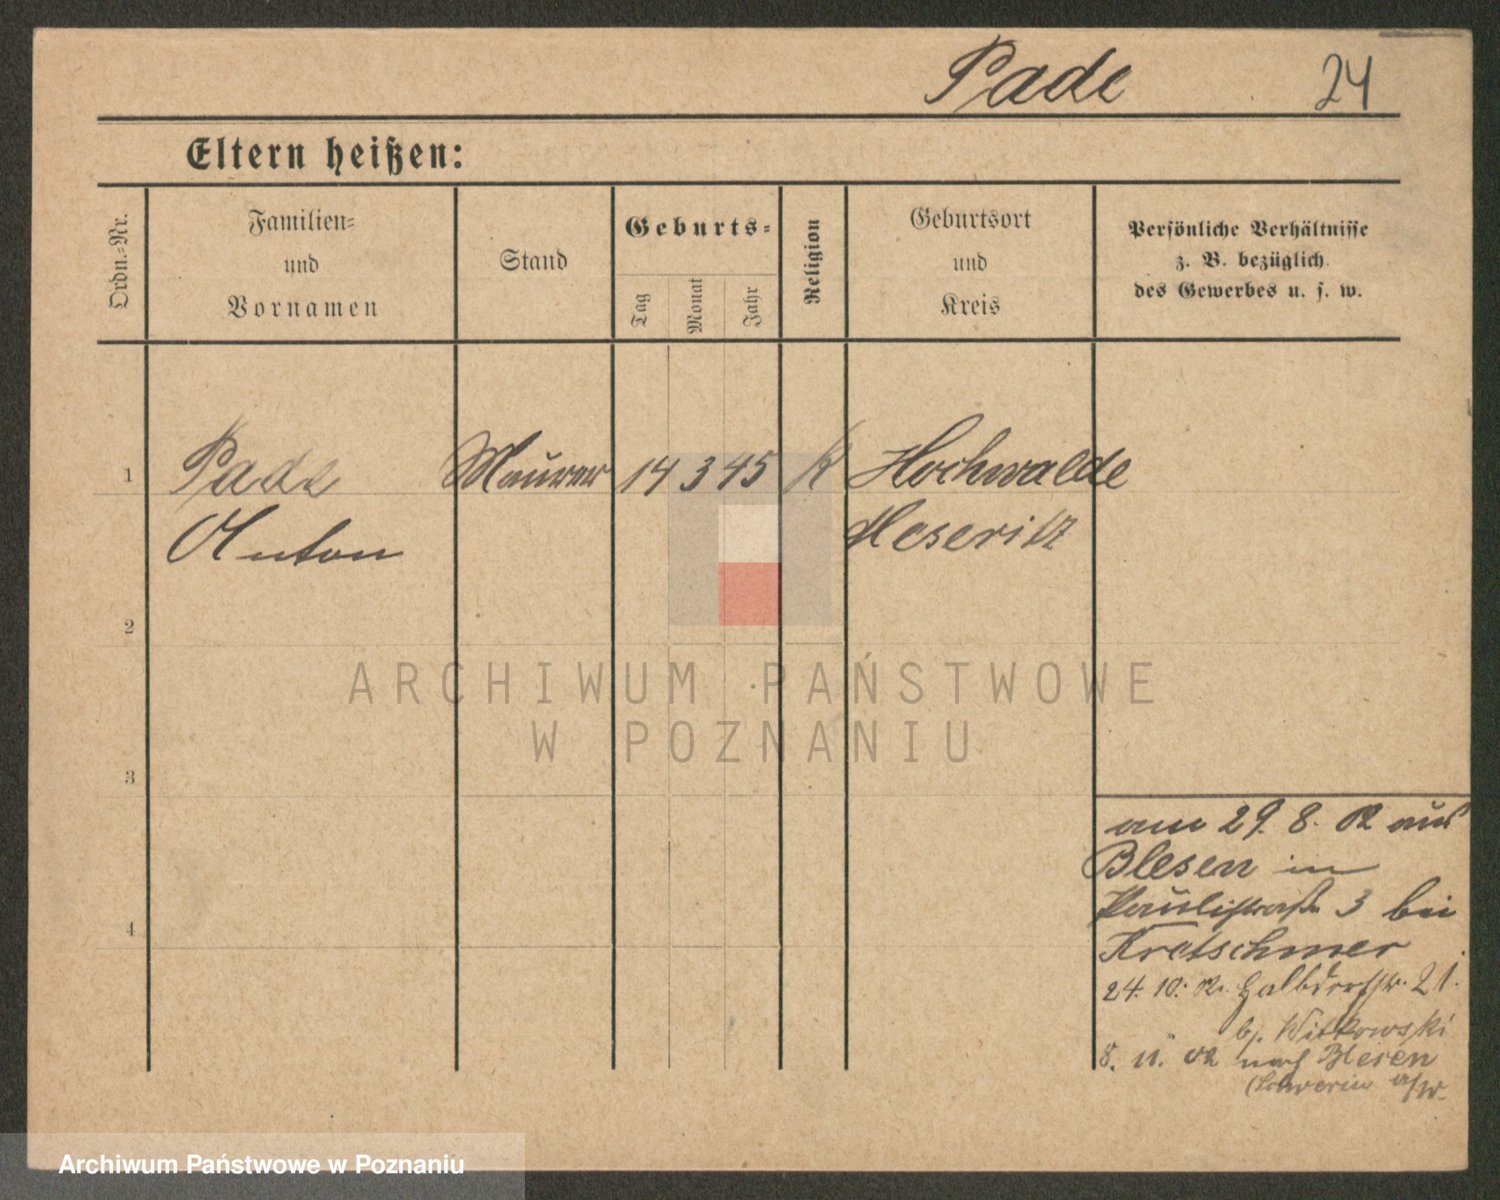 Pade 24
Eltern heißen:
Ordn.-Nr.
Familien-
und
Vornamen
Stand
Geburts-
Tag
Monat
Jahr
Religion
Geburtsort
und
Kreis
Persönliche Verhältnisse
z. B. bezüglich
des Gewerbes u. s. w.
1 Pade Maurer 14 3 45 K Hochwalde
Anton Meseritz
2
3
4
am 29. 8. aus
Blesen in
Paulistraße 3 bei
Kretschmer
24. 10. Halbdorfstr. 21.
b. Witkowski
8. 11. nach Blesen
Schwerin a/W.
ARCHIWUM PAŃSTWOWE
W POZNANIU
Archiwum Państwowe w Poznaniu